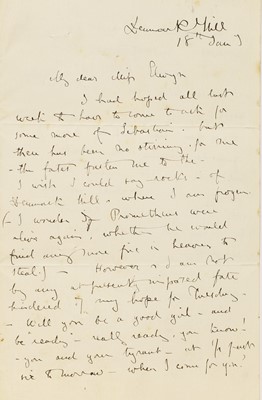 Denmark Hill
18th Jan
My dear Miss
I had hoped all last
week to have to come to ask for
some more of Sebastian. but
there has been no stirring for me
- the fates fasten me to the -
I wish I could say rocks - of
Denmark Hill, where I am frozen
(- I wonder if Prometheus were
alive again, whether he would
find any more fire in heaven to
steal) - However I am not
by any at present imposed fate
hindered of my hope for Tuesday -
- Will you be a good girl - and
be "ready" - really ready, you know!
- you and your tyrant - at 1/4 past
six tomorrow - when I come for you.